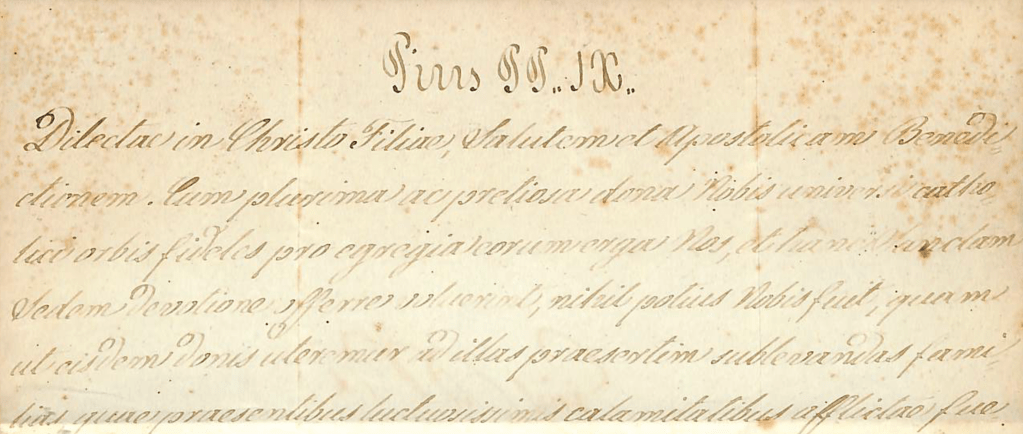 Pius PP. IX.
Dilectae in Christo Filiae, Salutem et Apostolicam Benedi-
ctionem. Cum plurima ac pretiosa dona Nobis universi catho-
lici orbis fideles pro egregia eorum erga Nos, et hanc Sanctam
Sedem devotione offerre voluerint, nihil potius Nobis fuit, quam
ut eisdem donis uteremur ad illas praesertim sublevandas fami-
lias quae praesentibus luctuosissimis calamitatibus afflictae fue